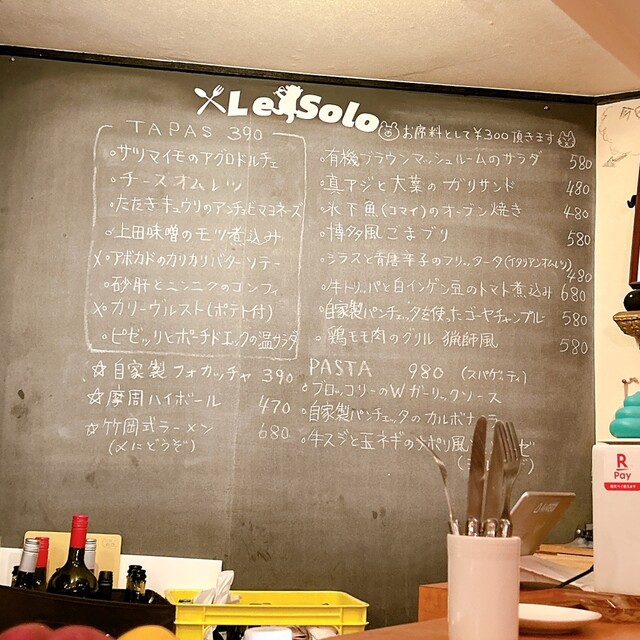 Le Solo
お席料として¥300頂きます
TAPAS 390
サツマイモのアグロドルチェ
チーズオムレツ
たたきキュウリのアンチョビマヨネーズ
上田味噌のモツ煮込み
×アボカドのカリカリバターソテー
砂肝とニンニクのコンフィ
×カリーヴルスト(ポテト付)
ピゼッリとポーチドエッグの温サラダ
☆自家製フォカッチャ 390
☆摩周ハイボール 470
☆竹岡式ラーメン 680
(〆にどうぞ)
有機ブラウンマッシュルームのサラダ 580
真アジと大葉のガリサンド 480
氷下魚(コマイ)のオーブン焼き 480
博多風ごまブリ 580
シラスと青唐辛子のフリッタータ(イタリアンオムレツ) 480
牛トリッパと白インゲン豆のトマト煮込み 680
自家製パンチェッタを使ったゴーヤチャンプルー 580
鶏モモ肉のグリル 猟師風 580
PASTA 980 (スパゲッティ)
ブロッコリーのWガーリックソース
自家製パンチェッタのカルボナーラ
牛スジと玉ネギのナポリ風
R
Pay